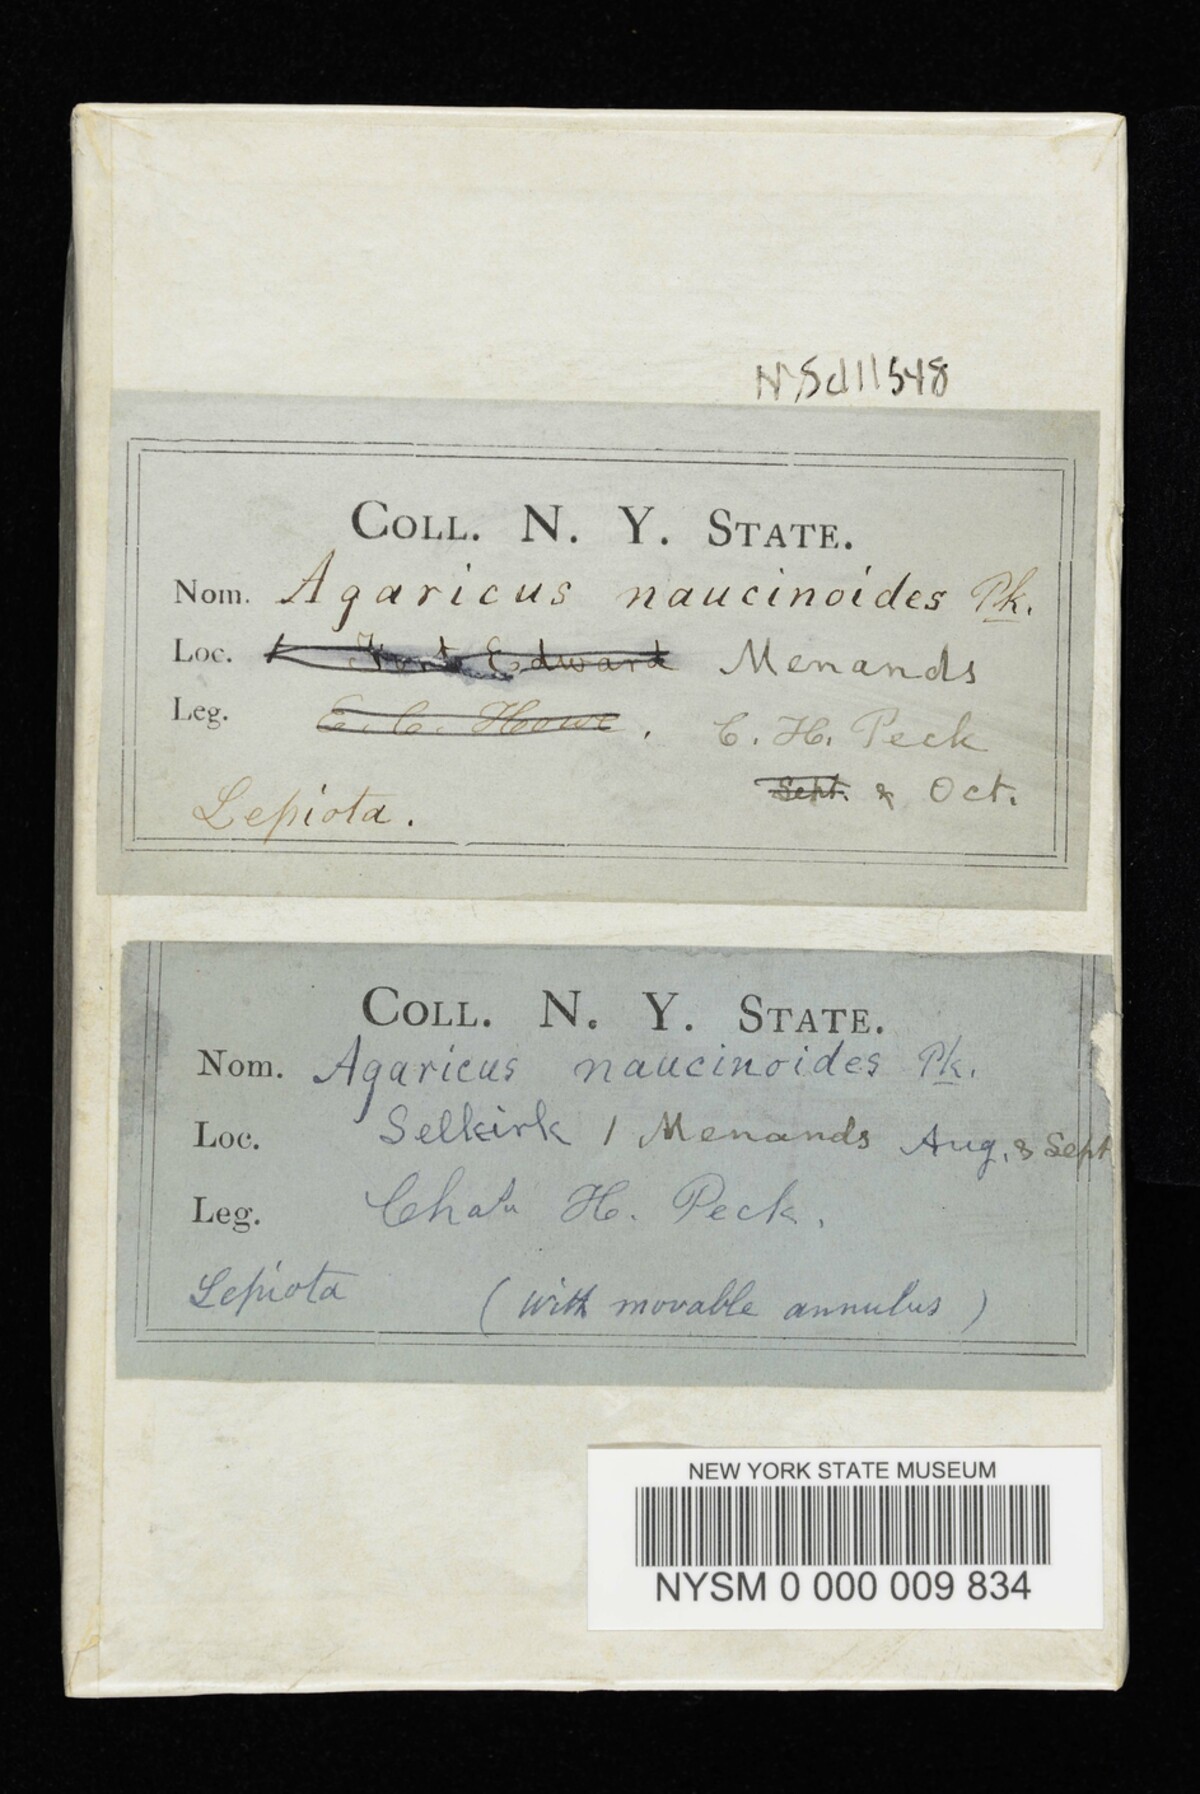 NYSd11548
COLL. N. Y. STATE.
Nom. Agaricus naucinoides Pk.
Loc. Fort Edward Menands
Leg. E. C. Howe, C. H. Peck
Sept. & Oct.
Lepiota.
COLL. N. Y. STATE.
Nom. Agaricus naucinoides Pk.
Loc. Selkirk / Menands Aug. & Sept
Leg. Chas H. Peck.
Lepiota (with movable annulus)
NEW YORK STATE MUSEUM
NYSM 0 000 009 834